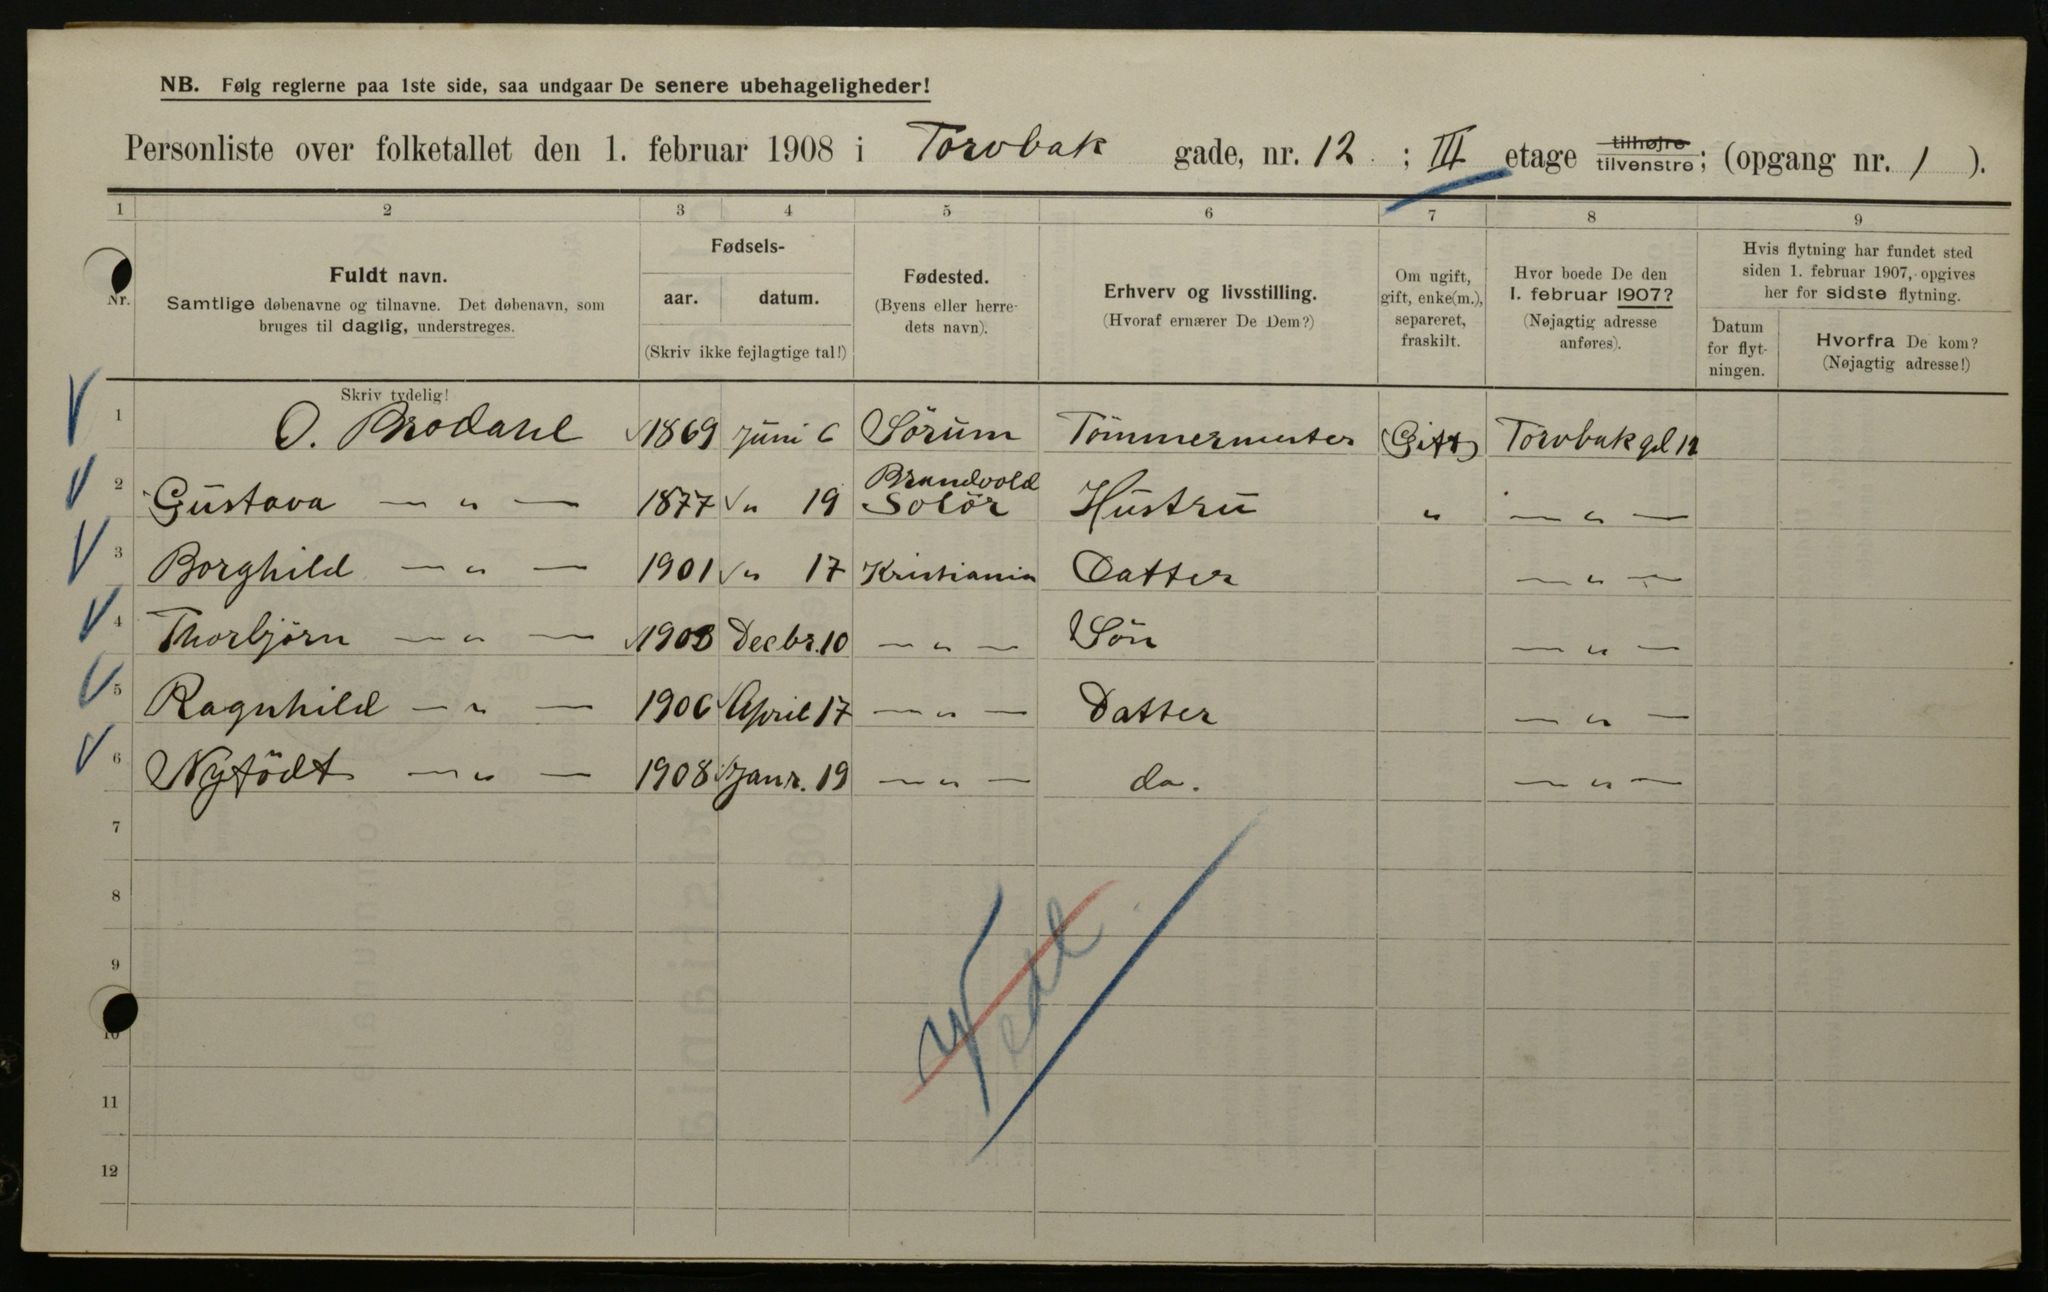 NB. Følg reglerne paa 1ste side, saa undgaar De senere ubehageligheder!
Personliste over folketallet den 1. februar 1908 i Torvbak gade, nr. 12 ; III etage tilhøjre tilvenstre; (opgang nr. 1 ).
1 2 3 4 5 6 7 8 9
Nr.
Fuldt navn.
Samtlige døbenavne og tilnavne. Det døbenavn, som
bruges til daglig, understreges.
Skriv tydelig!
Fødsels-
aar. datum.
(Skriv ikke fejlagtige tal!)
Fødested.
(Byens eller herre-
dets navn).
Erhverv og livsstilling.
(Hvoraf ernærer De Dem?)
Om ugift,
gift, enke(m.),
separeret,
fraskilt.
Hvor boede De den
1. februar 1907?
(Nøjagtig adresse
anføres).
Hvis flytning har fundet sted
siden 1. februar 1907, opgives
her for sidste flytning.
Datum
for flyt-
ningen.
Hvorfra De kom?
(Nøjagtig adresse!)
1 O. Brodahl 1869 Juni 6 Sörum Tömmermester Gift Torvbakgd 12
2 Gustava — " — 1877 " 19 Brandvold Solör Hustru " — " —
3 Borghild — " — 1901 " 17 Kristiania Datter — " —
4 Thorbjörn — " — 1903 Decbr. 10 — " — Sön — " —
5 Ragnhild — " — 1906 April 17 — " — Datter — " —
6 Nyfödt — " — 1908 Janr. 19 — " — do. — " —
7
8
9
10
11
12